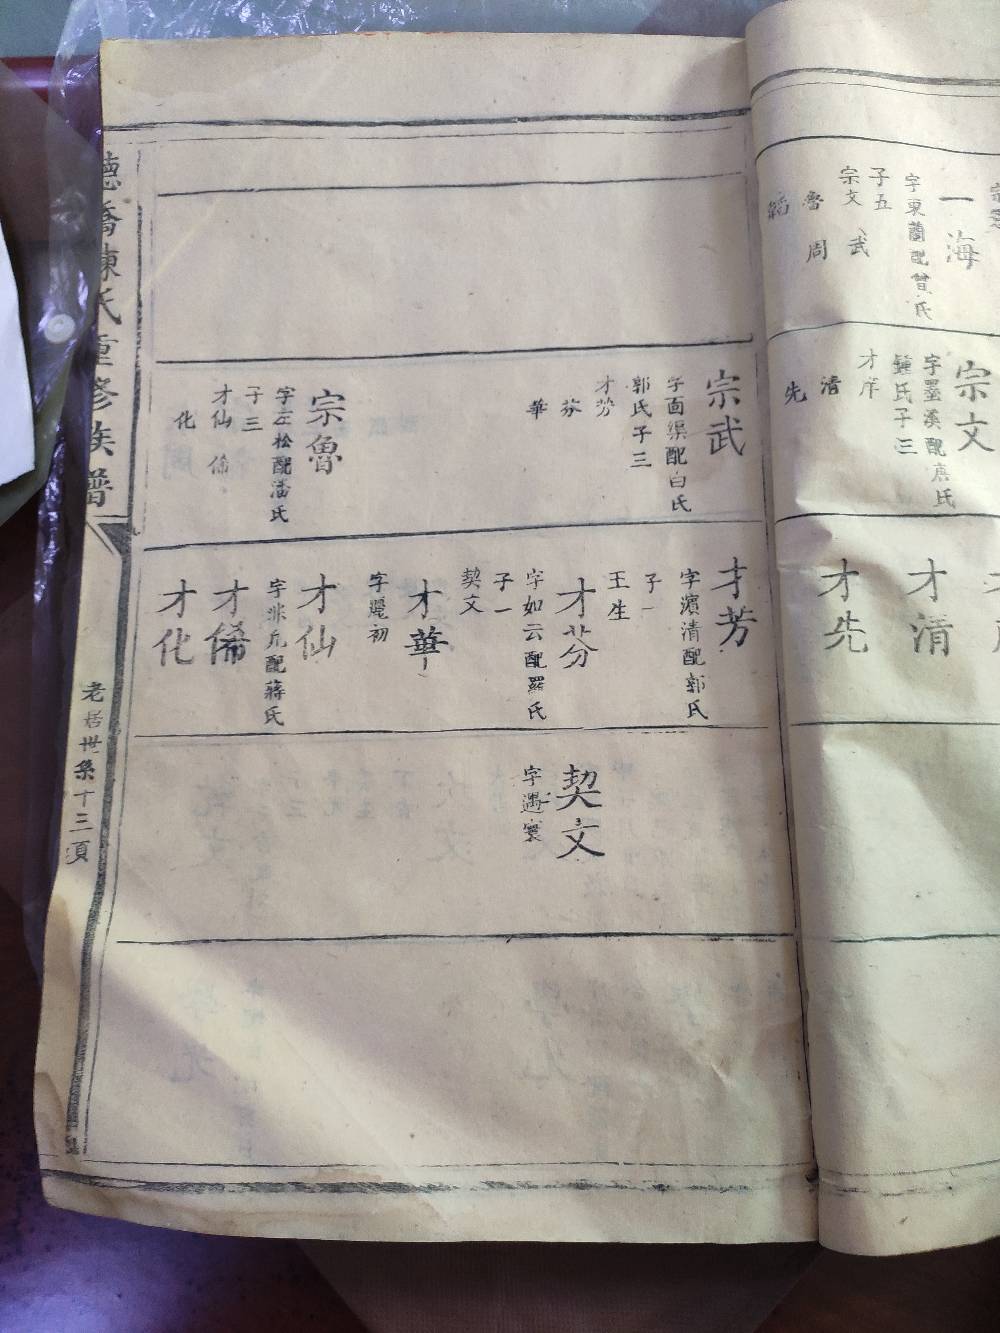 一海
字東蘭配曾氏
子五
宗文 武
魯 周
韜
宗文
字墨溪配
氏
鍾氏子三
才
清
先
才清
才先
宗武
字面渠配白氏
郭氏子三
才芳
芬
華
宗魯
字左松配潘氏
子三
才仙 俻
化
才芳
字濱清配郭氏
子一
王生
才芬
字如云配羅氏
子一
契文
才華
字麗初
才仙
字非凡配蔣氏
才俻
才化
契文
字遇寰
橋陳氏重修族譜
老居世系十三頁